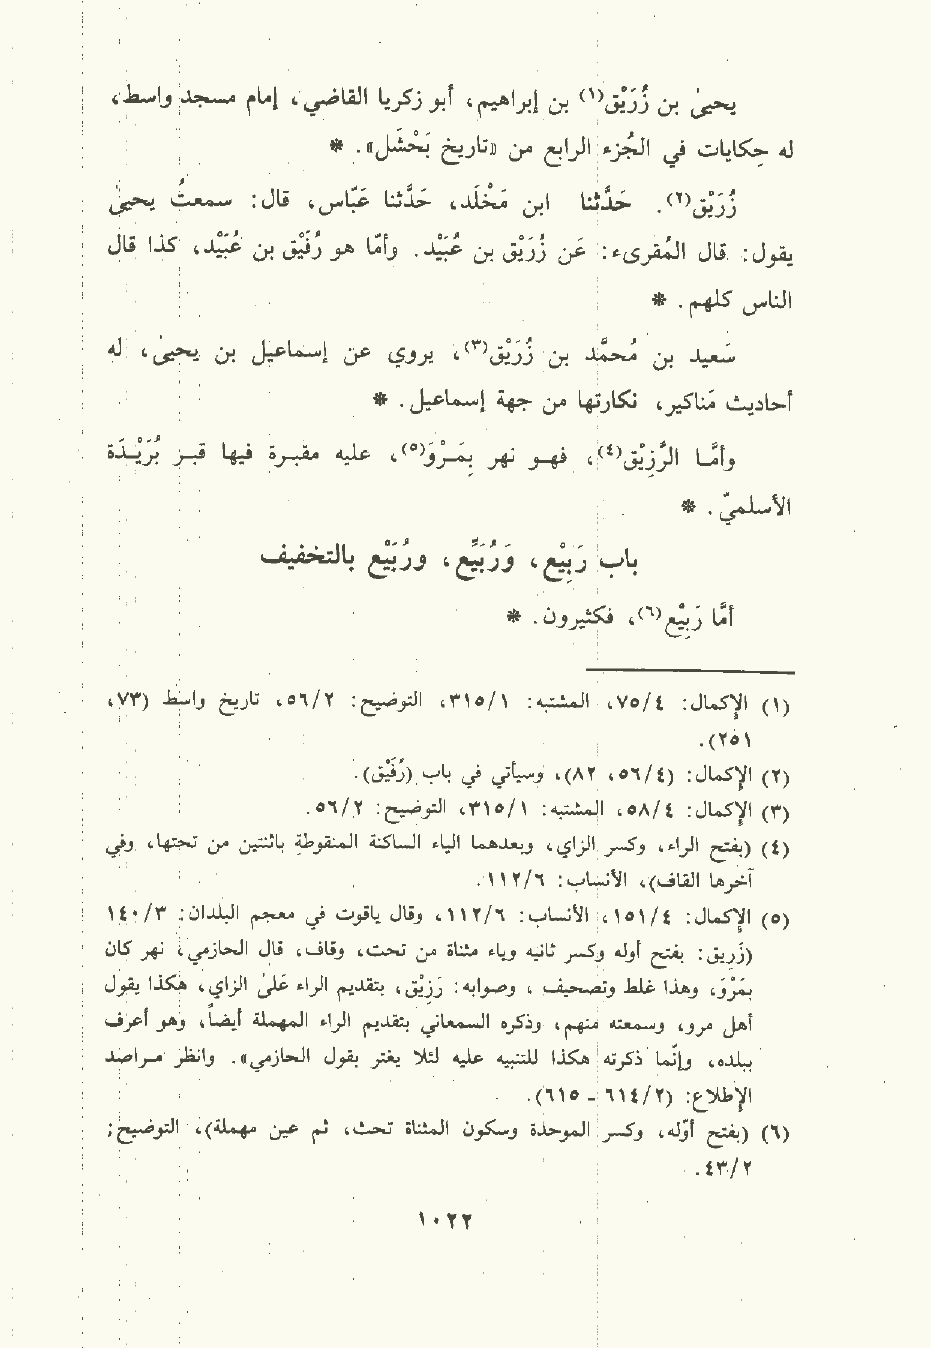 يحيىٰ بن زُرَيْق(١) بن إبراهيم، أبو زكريا القاضي، إمام مسجد واسط،
له حكايات في الجُزء الرابع من «تاريخ بَحْشَل». *
زُرَيْق(٢). حَدَّثنا ابن مَخْلَد، حَدَّثنا عَبّاس، قال: سمعتُ يحيىٰ
يقول: قال المُقرىء: عَن زُرَيْق بن عُبَيْد. وأمّا هو رُفَيْق بن عُبَيْد، كذا قال
الناس كلهم. *
سَعيد بن مُحمَّد بن زُرَيْق(٣)، يروي عن إسماعيل بن يحيىٰ، له
أحاديث مَناكير، نكارتها من جهة إسماعيل. *
وأمّـا الرَّزِيْق(٤)، فهـو نهر بِمَـرْوَ(٥)، عليه مقبـرة فيها قبـر بُرَيْـدَة
الأسلميّ. *
باب رَبِيْع، وَرُبَيِّع، ورُبَيْع بالتخفيف
أمَّا رَبِيْع(٦)، فكثيرون. *
(١) الإكمال: ٧٥/٤، المشتبه: ٣١٥/١، التوضيح: ٥٦/٢، تاريخ واسط (٧٣،
٢٥١).
(٢) الإكمال: (٥٦/٤، ٨٢)، وسيأتي في باب (رُفَيْق).
(٣) الإكمال: ٥٨/٤، المشتبه: ٣١٥/١، التوضيح: ٥٦/٢.
(٤) (بفتح الراء، وكسر الزاي، وبعدهما الياء الساكنة المنطوقة باثنتين من تحتها، وفي
آخرها القاف)، الأنساب: ١١٢/٦.
(٥) الإكمال: ١٥١/٤، الأنساب: ١١٢/٦، وقال ياقوت في معجم البلدان: ١٤٠/٣
(زَرِيق: بفتح أوله وكسر ثانيه وياء مثناة من تحت، وقاف، قال الحازمي: نهر كان
بمَرْوَ، وهذا غلط وتصحيف، وصوابه: رَزِيْق، بتقديم الراء عَلىٰ الزاي، هكذا يقول
أهل مرو، وسمعته منهم، وذكره السمعاني بتقديم الراء المهملة أيضاً، وهو أعرف
ببلده، وإنّما ذكرته هكذا للتنبيه عليه لئلا يغتر بقول الحازمي». وانظر مـراصد
الإطلاع: (٦١٤/٢ - ٦١٥).
(٦) (بفتح أوّله، وكسر الموحدة وسكون المثناة تحت، ثم عين مهملة)، التوضيح;
٤٣/٢.
١٠٢٢